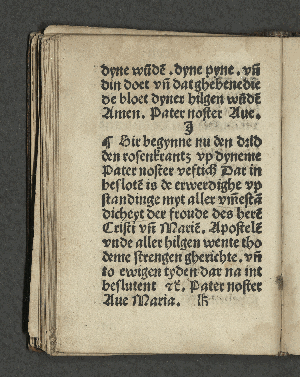 dyne wūdē . dyne pyne . vn̄
din doet vn̄ dat ghebenedie
de bloet dyner hilgen wūdē
Amen. Pater noster Aue.
J
¶ Hir begynne nu den drld
den rosenkrantz vp dyneme
Pater noster vestich Dar in
beslotē is de erwerdighe vp
standinge myt aller vmestā
dicheyt der froude des herē
Cristi vn̄ Mariē. Apostelē
vnde aller hilgen wente tho
deme strengen gherichte . vn̄
to ewigen tyden dar na int
beslutent ⁊c̄. Pater noster
Aue Maria.